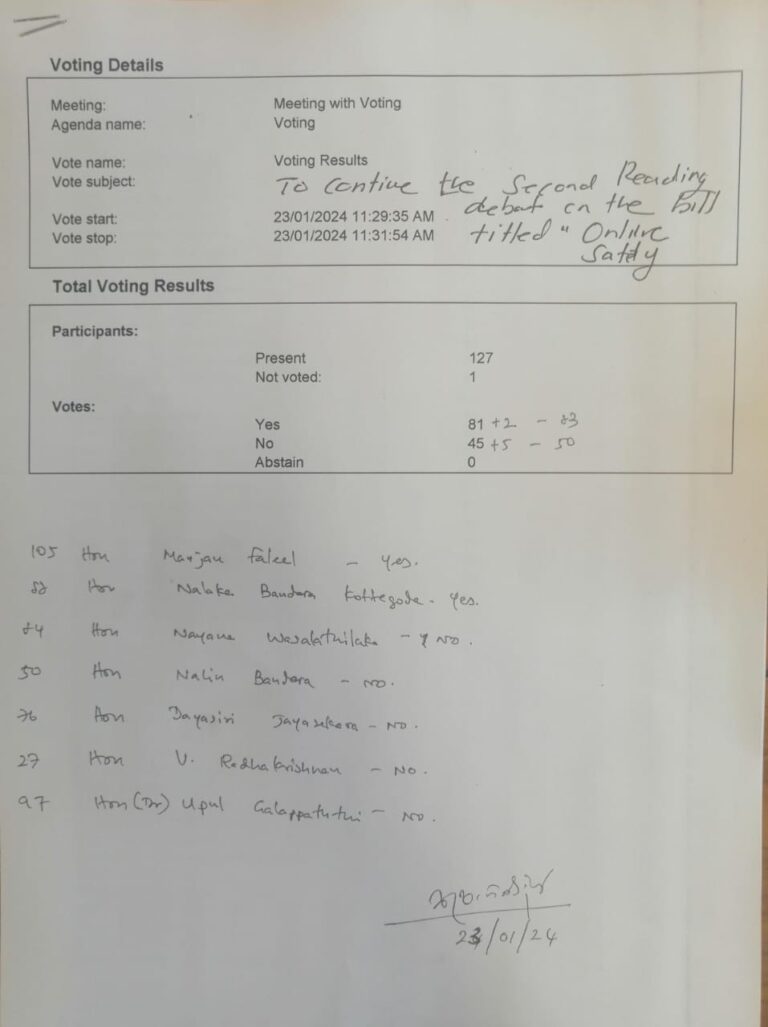 Voting Details
Meeting: Meeting with Voting
Agenda name: Voting
Vote name: Voting Results
Vote subject: To contine the Second Reading
debat on the Bill
Vote start: 23/01/2024 11:29:35 AM
Vote stop: 23/01/2024 11:31:54 AM titled " Online
Safety
Total Voting Results
Participants:
Present 127
Not voted: 1
Votes:
Yes 81 +2 - 83
No 45 +5 - 50
Abstain 0
105 Hon Marjan Faleel - Yes.
Hon Nalaka Bandara Kottegoda - Yes.
84 Hon Nayana Wasalathilake - NO.
50 Hon Nalin Bandara - NO.
76 Hon Dayasiri Jayasekara - NO.
27 Hon V. Radhakrishnan - No.
97 Hon (Dr) Upul Galappaththi - No.
23/01/24